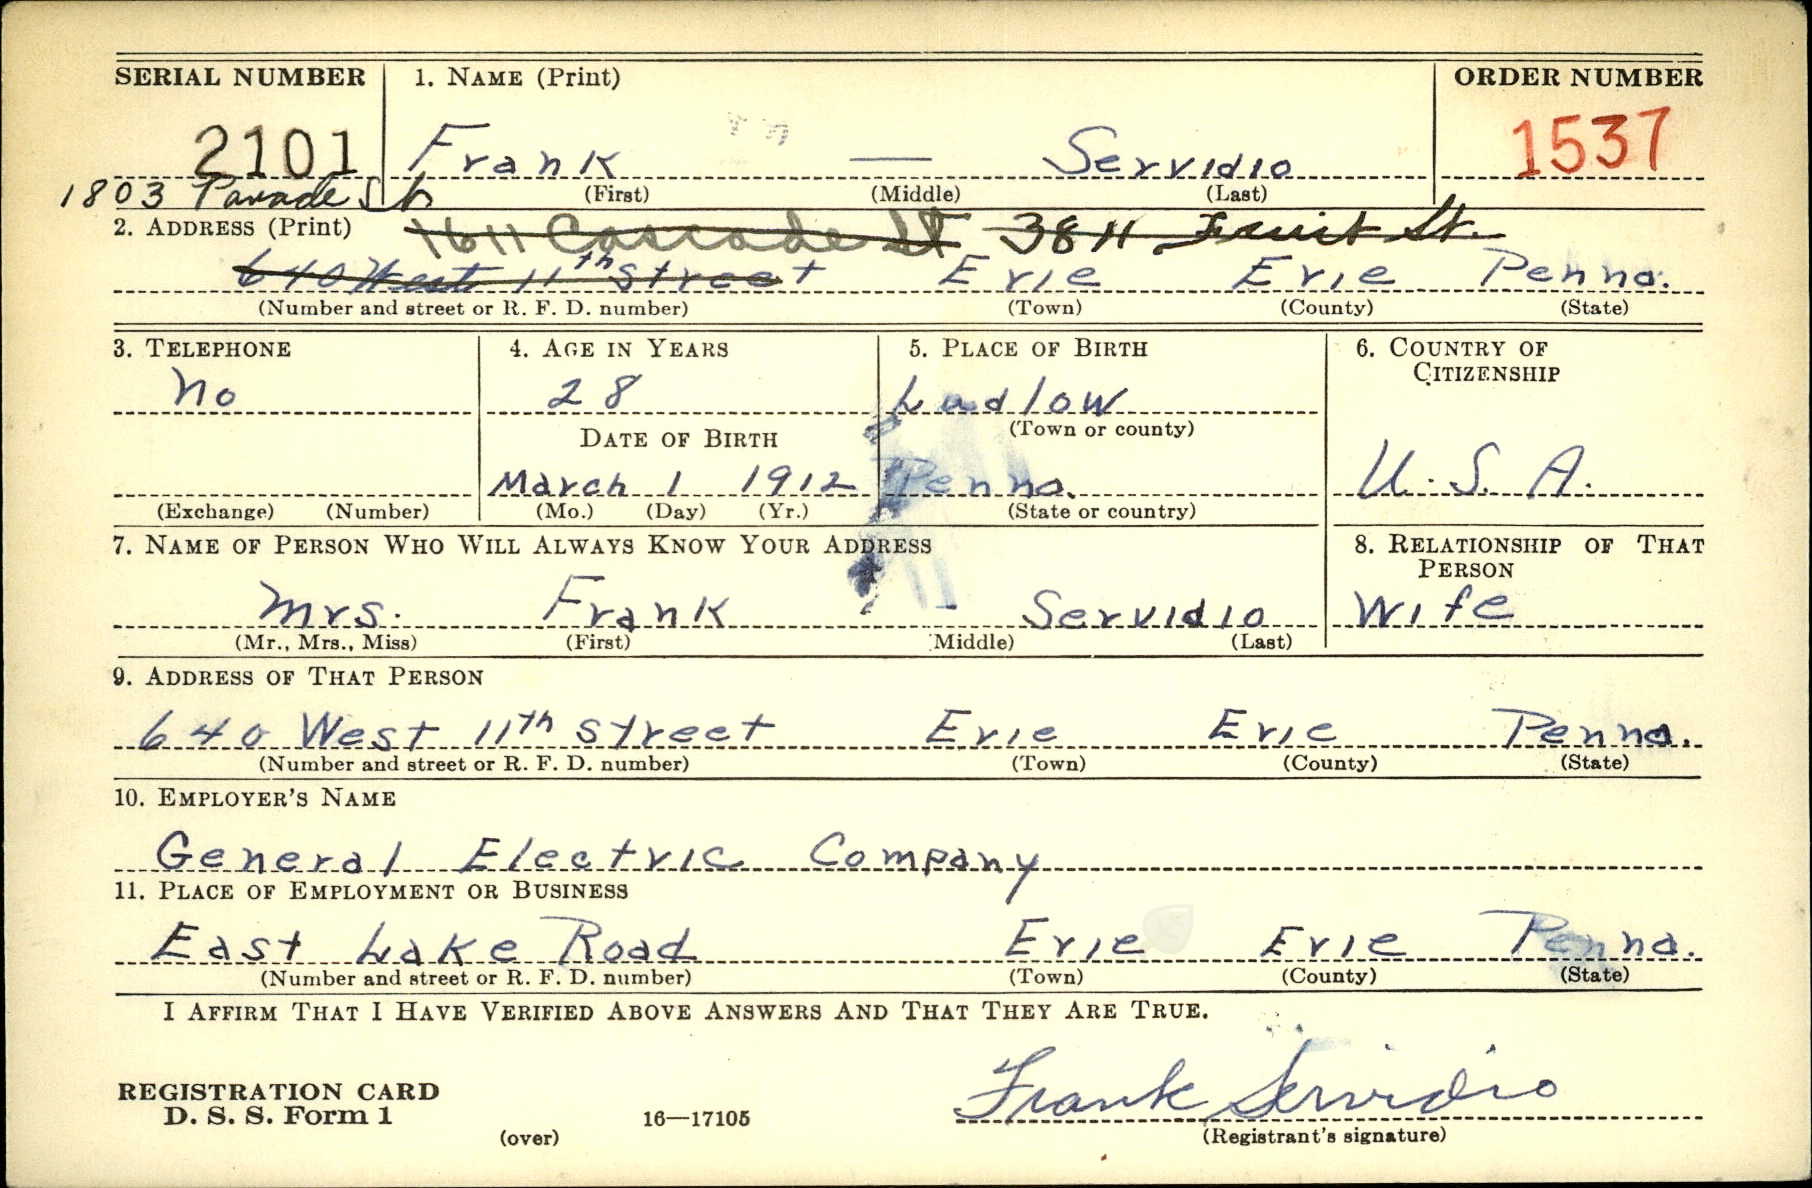 SERIAL NUMBER 1. NAME (Print) ORDER NUMBER
2101 Frank — Servidio 1537
(First) (Middle) (Last)
1803 Parade St
2. ADDRESS (Print) 1611 Cascade St 3811 Fruit St.
640 West 11th Street Erie Erie Penna.
(Number and street or R. F. D. number) (Town) (County) (State)
3. TELEPHONE 4. AGE IN YEARS 5. PLACE OF BIRTH 6. COUNTRY OF
CITIZENSHIP
No 28 Ludlow
DATE OF BIRTH (Town or county)
March 1 1912 Penna. U.S.A.
(Exchange) (Number) (Mo.) (Day) (Yr.) (State or country)
7. NAME OF PERSON WHO WILL ALWAYS KNOW YOUR ADDRESS 8. RELATIONSHIP OF THAT
PERSON
Mrs. Frank – Servidio Wife
(Mr., Mrs., Miss) (First) (Middle) (Last)
9. ADDRESS OF THAT PERSON
640 West 11th Street Erie Erie Penna.
(Number and street or R. F. D. number) (Town) (County) (State)
10. EMPLOYER'S NAME
General Electric Company
11. PLACE OF EMPLOYMENT OR BUSINESS
East Lake Road Erie Erie Penna.
(Number and street or R. F. D. number) (Town) (County) (State)
I AFFIRM THAT I HAVE VERIFIED ABOVE ANSWERS AND THAT THEY ARE TRUE.
REGISTRATION CARD Frank Servidio
D. S. S. Form 1 (over) 16—17105 (Registrant's signature)